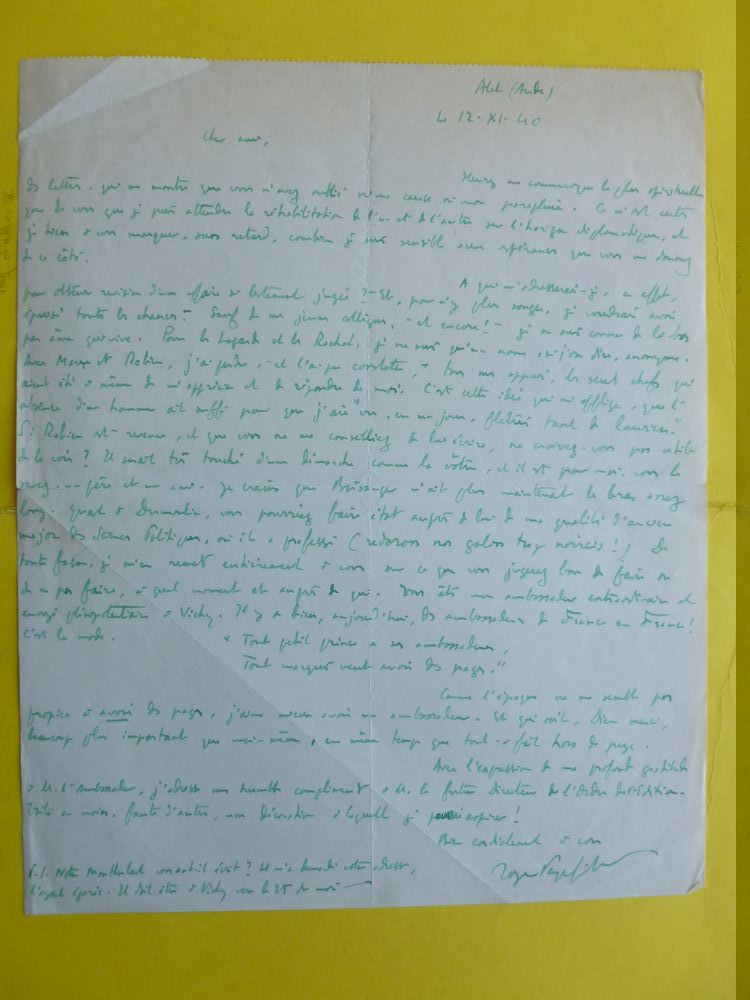 Alet (Aude)
Le 12-XI-40
Cher ami,
Henry me communique la plus spirituelle
des lettres, qui me montre que vous n'avez oublié ni ma cause ni mon parapluie. Ce n'est certes
que de vous que je puis attendre la réhabilitation de l'un et de l'autre sur l'horizon diplomatique, et
je tiens à vous marquer, sans retard, combien je suis sensible aux espérances que vous me donnez
de ce côté.
A qui m'adresserai-je, en effet,
pour obtenir revision d'une affaire si lestement jugée ? Et, pour n'y plus songer, je voudrais avoir
épuisé toutes les chances. Sauf de un jeune collègue, - et encore ! - je ne suis connu de là-bas
par âme qui vive. Pour les Lagarde et les Rochat, je ne suis qu'un nom, si j'ose dire, anonyme.
Avec Marx et Robien, j'ai perdu, - et l'ai pu constater, - tous mes appuis, les seuls chefs qui
aient été à même de m'apprécier et de répondre de moi. C'est cette idée qui m'afflige, que l'
absence d'un homme ait suffi pour que j'aie "vu, en un jour, flétrir tant de lauriers."
Si Robien est revenu, et que vous ne me conseilliez de lui écrire, ne croiriez-vous pas utile
de le voir ? Il serait très touché d'une démarche comme la vôtre, et il est pour moi, vous le
savez, un père et un ami. Je crains que Boissanger n'ait plus maintenant le bras assez
long. Quant à Dumoulin, vous pourriez faire état auprès de lui de ma qualité d'ancien
major des Sciences Politiques, où il a professé (redorons nos galons trop noircis !) De
toute façon, je m'en remets entièrement à vous sur ce que vous jugerez bon de faire ou
de ne pas faire, à quel moment et auprès de qui. Vous êtes mon ambassadeur extraordinaire et
envoyé plénipotentiaire à Vichy. Il y a bien, aujourd'hui, des ambassadeurs de France en France !
C'est la mode.
" Tout petit prince a ses ambassadeurs,
Tout marquis veut avoir des pages."
Comme l'époque ne me semble pas
propice à avoir des pages, j'aime mieux avoir un ambassadeur. Et qui soit, Dieu merci,
beaucoup plus important que moi-même, en même temps que tout à fait hors de page.
Avec l'expression de ma profonde gratitude
à M. l'Ambassadeur, j'adresse mes humbles compliments à M. le futur Directeur de l'Ordre de l'Edition.
Voilà au moins, faute d'autres, une décoration à laquelle je peux aspirer !
Bien cordialement à vous
Roger Peyrefitte
P.S. Notre Montherlant vous a-t-il écrit ? Il m'a demandé votre adresse,
Il doit être à Vichy vers le 25 du mois